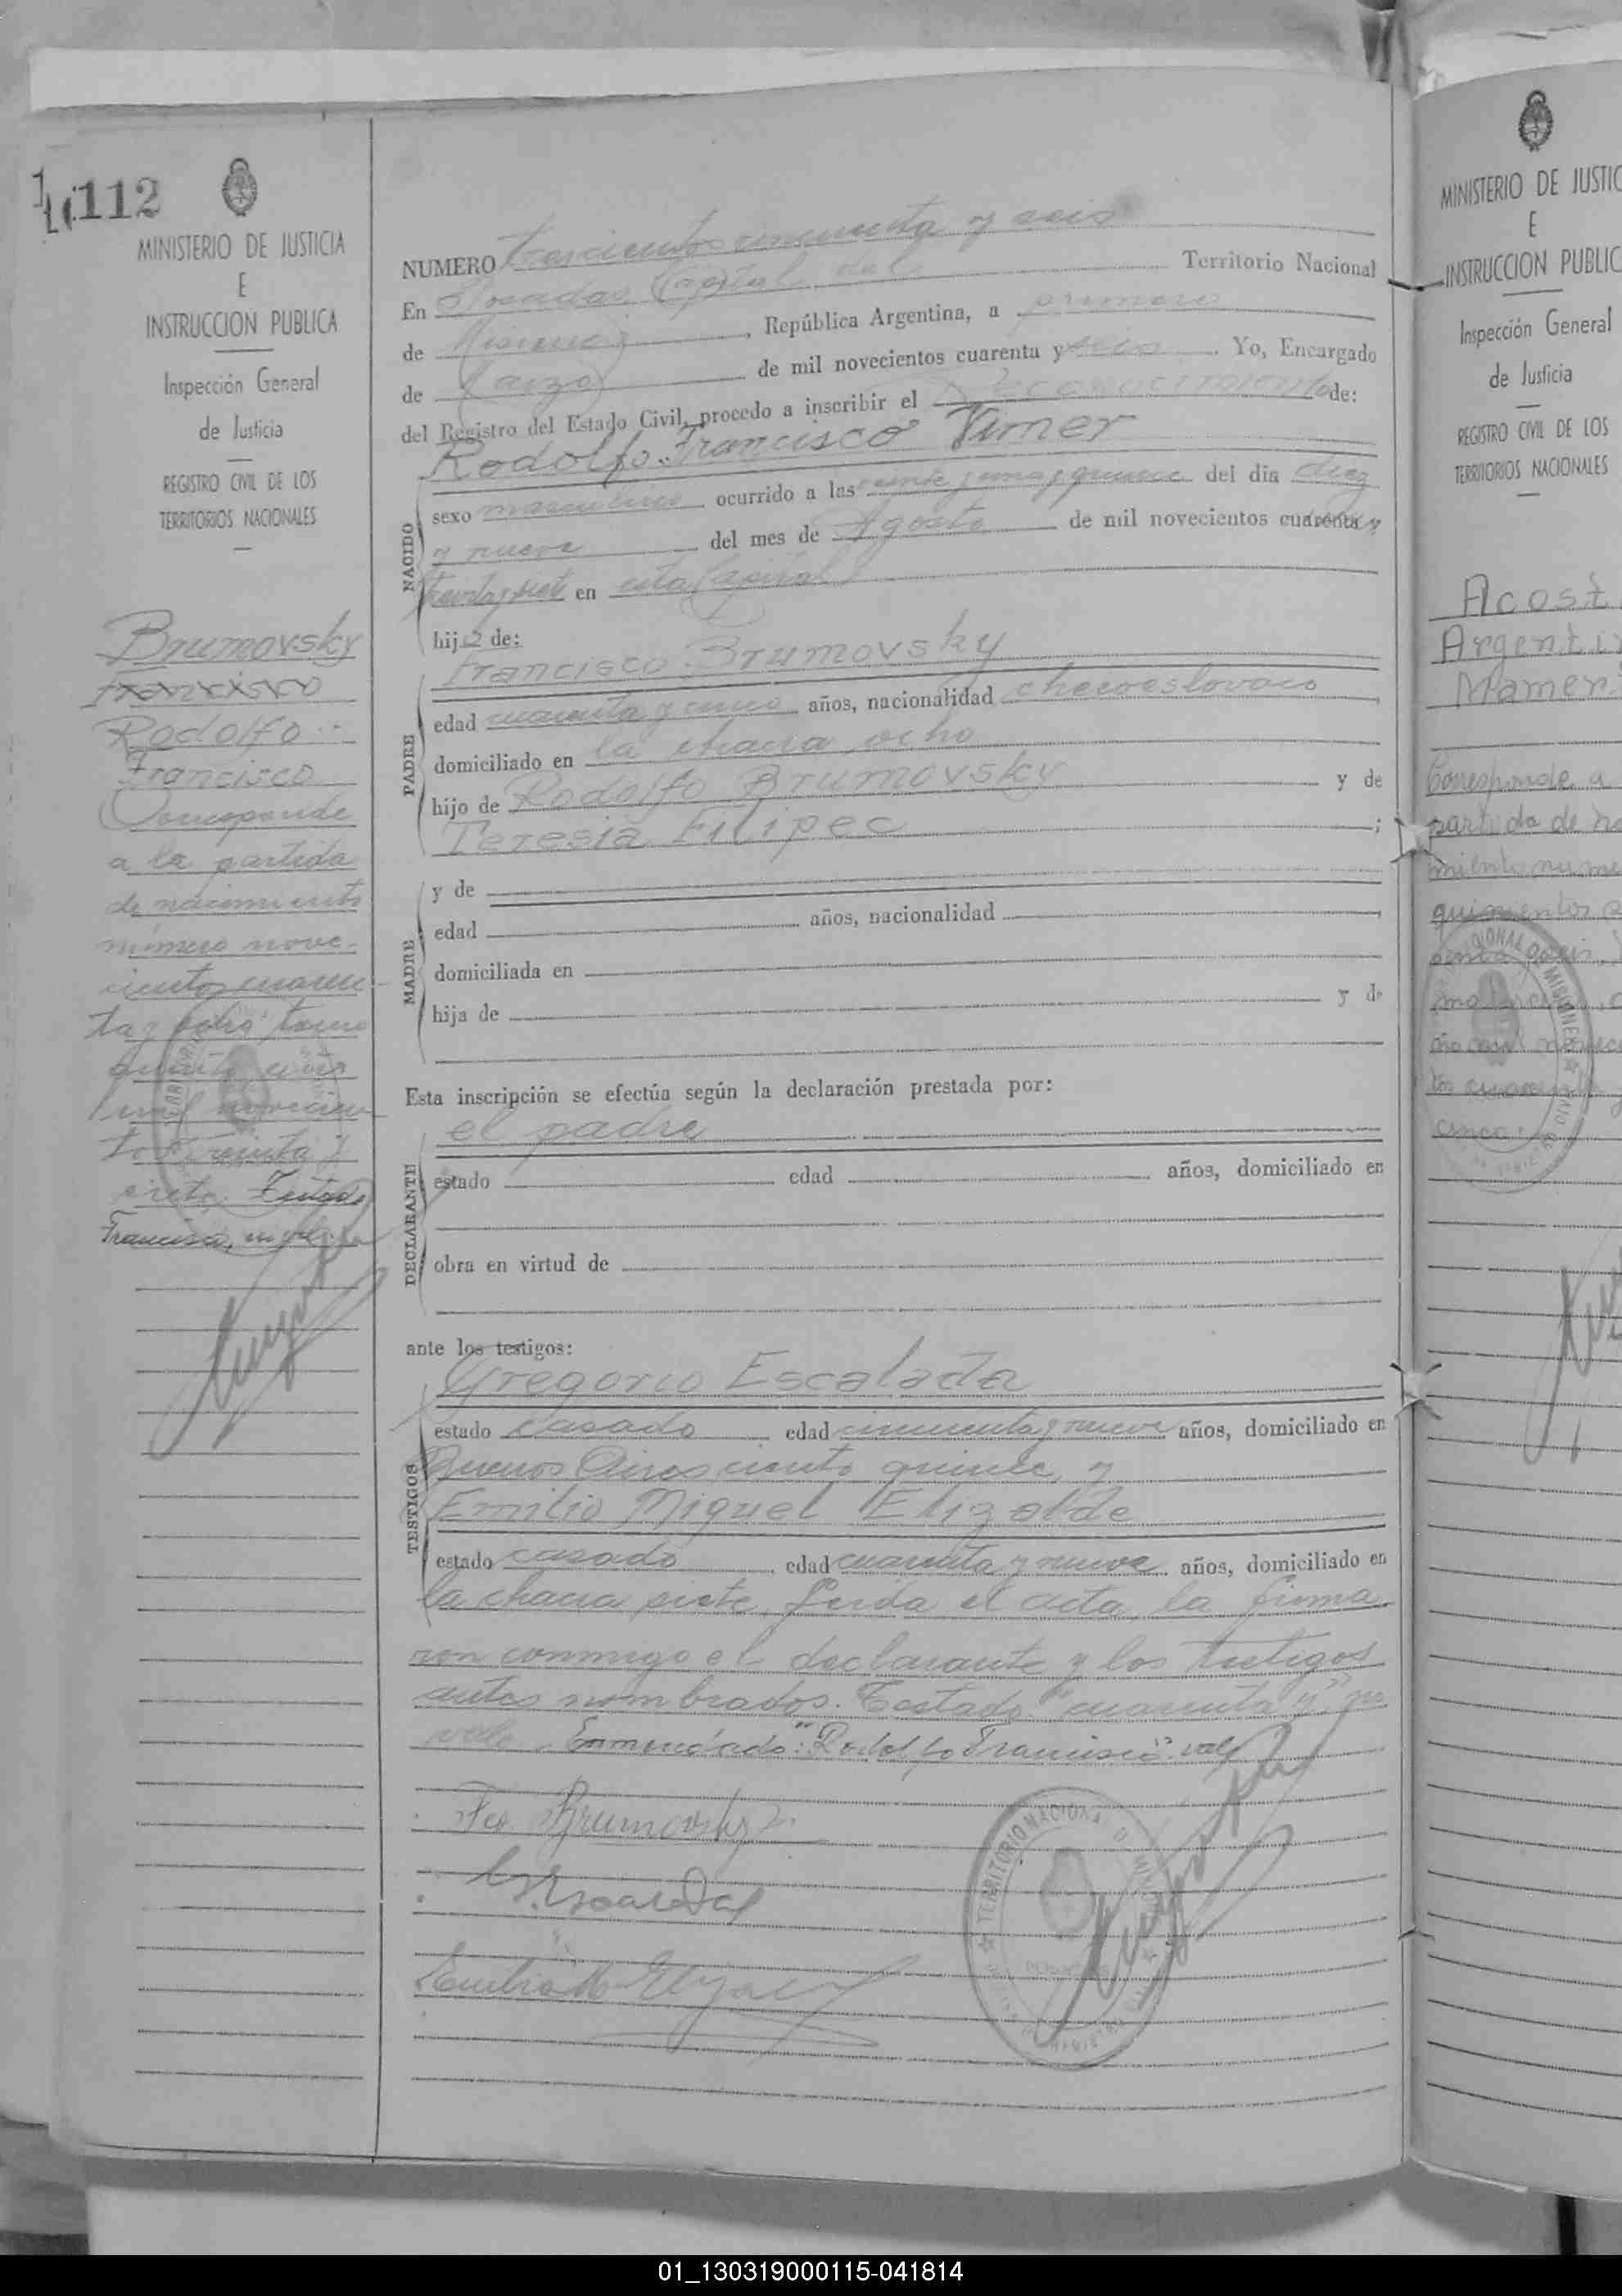 112
MINISTERIO DE JUSTICIA
E
INSTRUCCION PUBLICA
Inspección General
de Justicia
REGISTRO CIVIL DE LOS
TERRITORIOS NACIONALES
Brumovsky
Francisco
Rodolfo
Francisco
Corresponde
a la partida
de nacimiento
número nove-
cientos cuaren
ta y ocho tomo
cuarto año
mil novecien
tos treinta y
siete. Testado
Francisco, no vale
NUMERO trescientos cincuenta y seis
En Posadas Capital del Territorio Nacional
de Misiones, República Argentina, a primero
de Marzo de mil novecientos cuarenta y seis. Yo, Encargado
del Registro del Estado Civil, procedo a inscribir el Reconocimiento de:
Rodolfo Francisco Vimer
NACIDO
sexo masculino ocurrido a las veinte y una y quince del día diez
y nueve del mes de Agosto de mil novecientos cuarenta y
treinta y siete en esta Capital
hijo de:
Francisco Brumovsky
PADRE
edad cuarenta y cinco años, nacionalidad checoeslovaco
domiciliado en la chacra ocho
hijo de Rodolfo Brumovsky y de
Teresia Filipec;
MADRE
y de
edad años, nacionalidad
domiciliada en
hija de y de
Esta inscripción se efectúa según la declaración prestada por:
el padre
DECLARANTE
estado edad años, domiciliado en
obra en virtud de
ante los testigos:
Gregorio Escalada
TESTIGOS
estado casado edad cincuenta y nueve años, domiciliado en
Buenos Aires ciento quince y
Emilio Miguel Elizalde
estado casado edad cuarenta y nueve años, domiciliado en
la chacra siete. Leida el acta, la firma
ron conmigo el declarante y los testigos
antes nombrados. Testado "cuarenta y" no
vale. Enmendado: "Rodolfo Francisco" vale
Fco Brumovsky
TERRITORIO NACIONAL DE MISIONES
MINISTERIO DE JUSTIC
E
INSTRUCCION PUBLIC
Inspección General
de Justicia
REGISTRO CIVIL DE LOS
TERRITORIOS NACIONALES
Acost
Argenti
Mamer
Corresponde a
partida de na
miento nume
quinientos
01_130319000115-041814